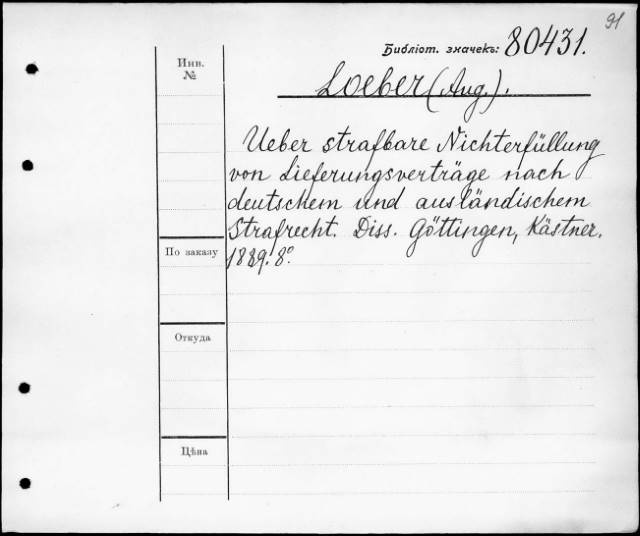 91
Библіот. значекъ: 80431.
Инв.
№
Loeber (Aug.).
Ueber strafbare Nichterfüllung
von Lieferungsverträge nach
deutschem und ausländischem
Strafrecht. Diss. Göttingen, Kästner.
По заказу
1889. 8º.
Откуда
Цѣна